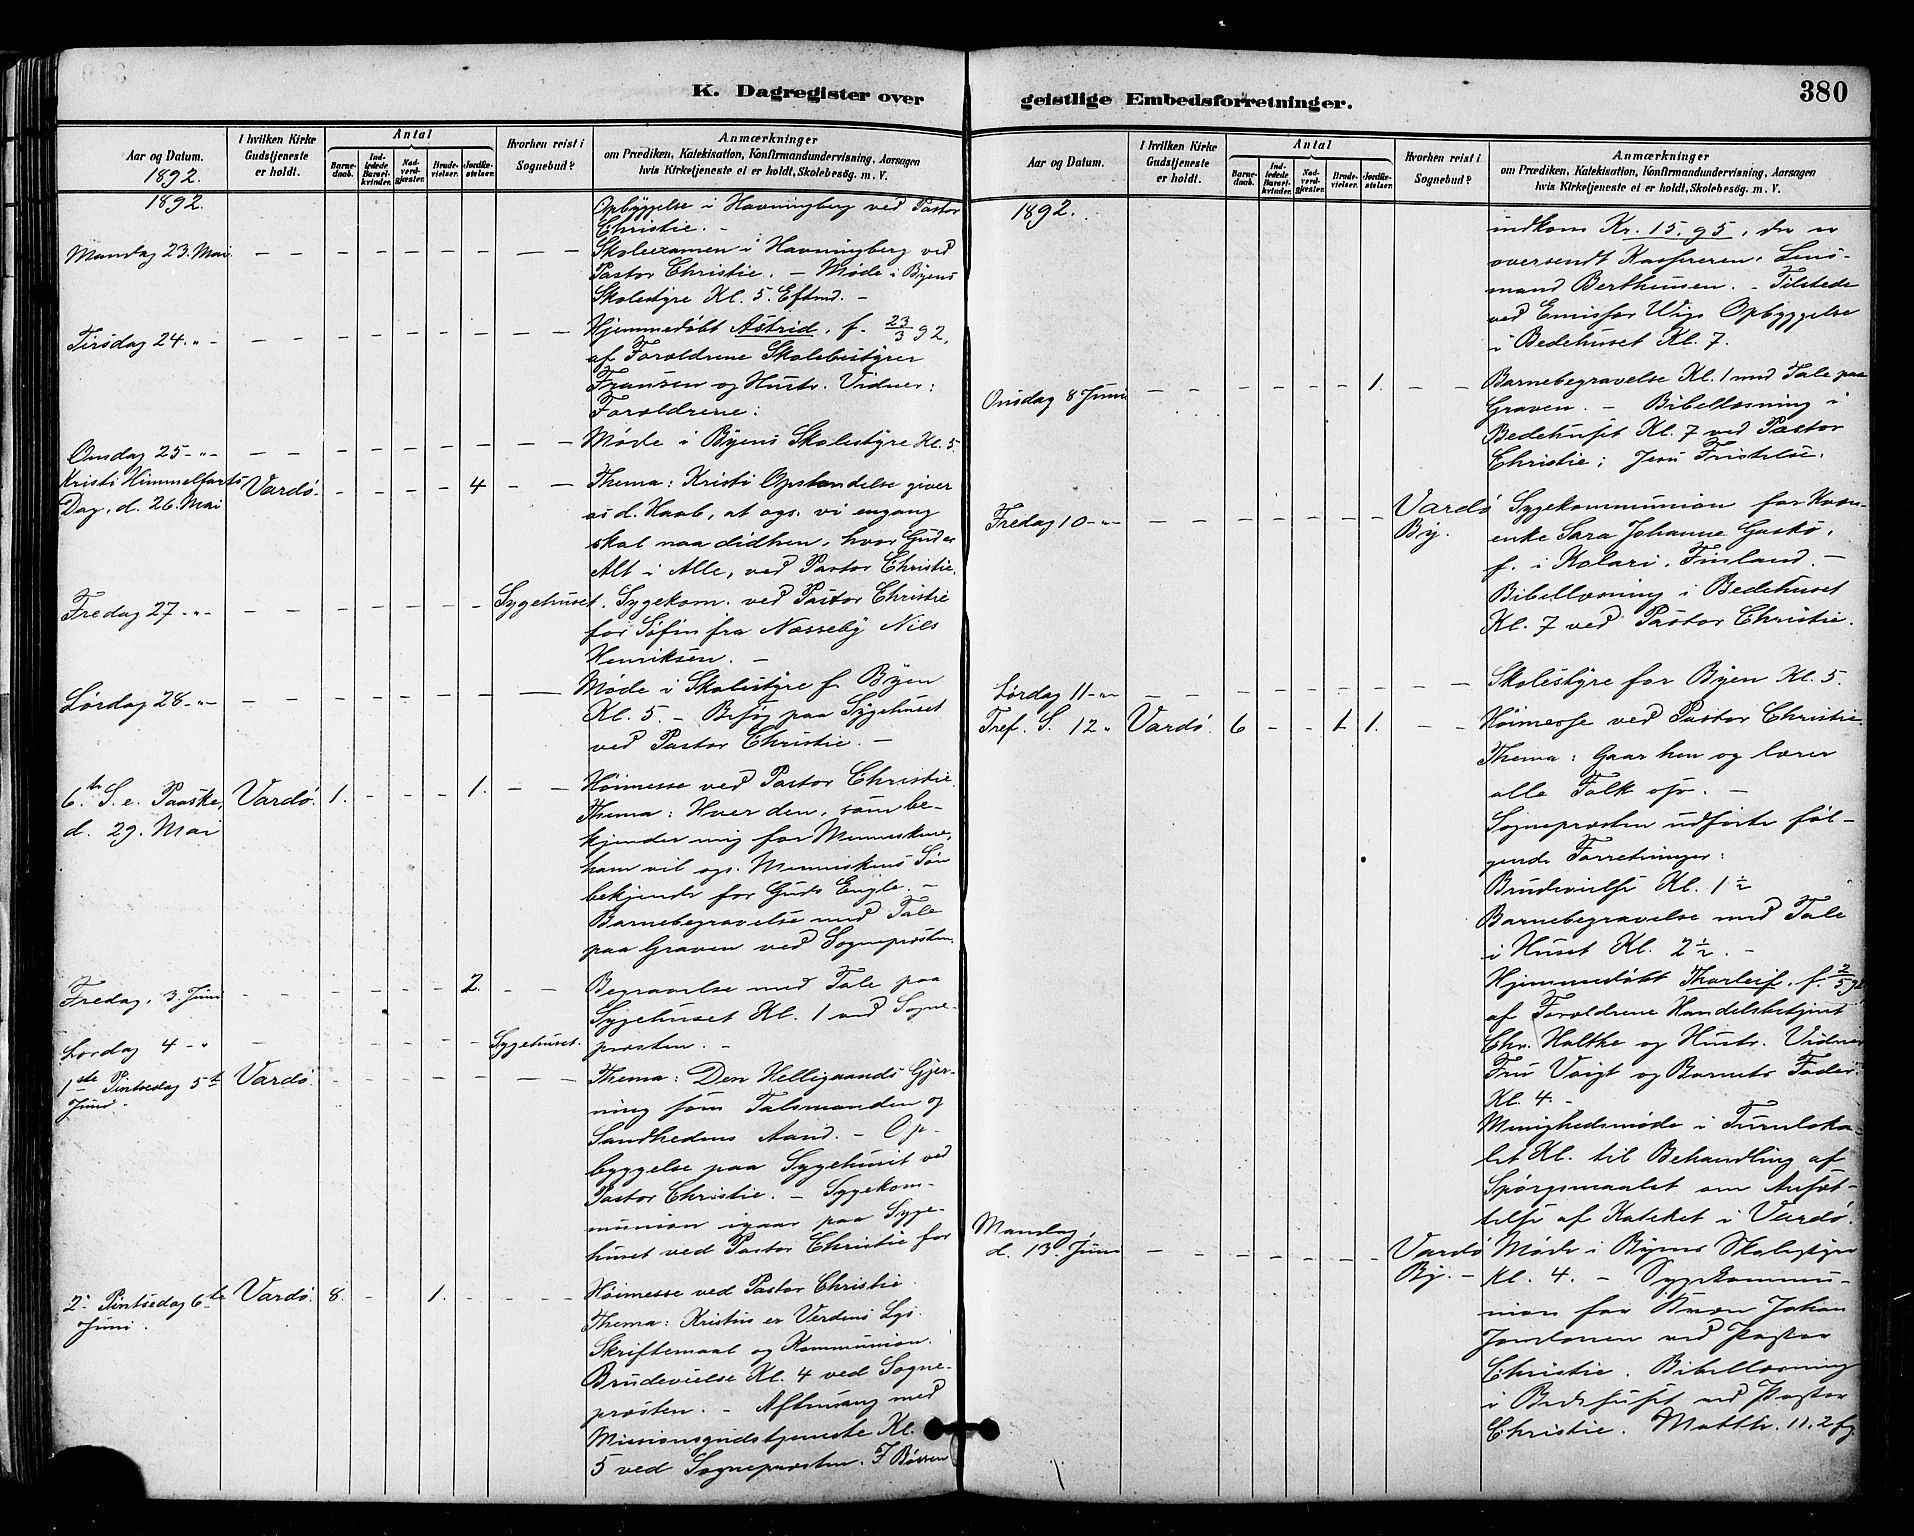 380
K. Dagregister over
geistlige Embedsforretninger.
Aar og Datum.
1892.
I hvilken Kirke
Gudstjeneste
er holdt.
Antal
Barne-
daab.
Ind-
ledede
Barsel-
kvinder.
Nad-
verd-
gjæster.
Brude-
vielser.
Jordfæ-
stelser.
Hvorhen reist i
Sognebud?
Anmærkninger
om Prædiken, Katekisation, Konfirmandundervisning, Aarsagen
hvis Kirketjeneste ei er holdt, Skolebesøg. m. V.
1892.
Opbyggelse i Havningberg ved Pastor
Christie. -
Mandag 23. Mai - - - - - - - Skoleexamen i Havningberg ved
Pastor Christie. - Møde i Byens
Skolestyre Kl. 5. Eftmd. -
Tirsdag 24. -"- - - - - - - - Hjemmedøbt Astrid, f. 23/3 92,
af Forældrene Skolebestyrer
Fransen og Hustr. Vidner:
Forældrene:
Onsdag 25 -"- - - - - - - - Møde i Byens Skolestyre Kl. 5.
Kristi Himmelfarts
Dag, d. 26. Mai Vardø. - - - - 4 - - Thema: Kristi Opstandelse giver
os d. Haab, at ogs. vi engang
skal naa didhen, hvor Gud er
Alt i Alle, ved Pastor Christie.
Fredag 27 -"- - - - - - - Sygehuset. Sygekom. ved Pastor Christie
for Søfin fra Næsseby Nils
Henriksen. -
Lørdag 28 -"- - - - - - - - Møde i Skolestyre f. Byen
Kl. 5. - Besøg paa Sygehuset
ved Pastor Christie. -
6te S. e. Paaske,
d. 29. Mai Vardø. 1. - - - 1. - - Høimesse ved Pastor Christie.
Thema: Hver den, som be-
kjender mig for Menneskene,
ham vil ogs. Menneskens Søn
bekjende for Guds Engle. -
Barnebegravelse med Tale
paa Graven ved Sognepræsten.
Fredag, 3. Juni - - - - - 2. - - Begravelse med Tale paa
Sygehuset Kl. 1 ved Sogne-
præsten. -
Lørdag 4 -"- - - - - - - Sygehuset.
1ste Pintsedag 5te
Juni. Vardø. - - - - - - - Thema: Den Helligaands Gjer-
ning som Talsmanden og
Sandhedens Aand. - Op-
byggelse paa Sygehuset ved
Pastor Christie. - Sygekom-
munion igaar paa Syge-
huset ved Pastor Christie for
2. Pintsedag 6te
Juni. Vardø. 8. - - 1. - - - Høimesse ved Pastor Christie.
Thema: Kristus er Verdens Lys.
Skriftemaal og Kommunion.
Brudevielse Kl. 4 ved Sogne-
præsten. - Aftensang med
Missionsgudstjeneste Kl.
5 ved Sognepræsten. I Bøssen
Aar og Datum.
I hvilken Kirke
Gudstjeneste
er holdt.
Antal
Barne-
daab.
Ind-
ledede
Barsel-
kvinder.
Nad-
verd-
gjæster.
Brude-
vielser.
Jordfæ-
stelser.
Hvorhen reist i
Sognebud?
Anmærkninger
om Prædiken, Katekisation, Konfirmandundervisning, Aarsagen
hvis Kirketjeneste ei er holdt, Skolebesøg. m. V.
1892.
indkom Kr. 15,95, der er
oversendt Kasfereren, Lens-
mand Berthensen. - Tilstede
ved Emisfær Wigs Opbyggelse
i Bedehuset Kl. 7.
Onsdag 8 Juni - - - - - 1. - - Barnebegravelse Kl. 1 med Tale paa
Graven. - Bibellæsning i
Bedehuset Kl. 7 ved Pastor
Christie; Jesu Fristelse.
Fredag 10 -"- - - - - - - Vardø
By. Sygekommunion for Kvæn-
enke Sara Johanne Gaskø,
f. i Kolari, Finland. -
Bibellæsning i Bedehuset
Kl. 7 ved Pastor Christie.
Lørdag 11 -"- - - - - - - - Skolestyre for Byen Kl. 5.
Tref. S. 12 " Vardø. 6 - - 1. 1. - - Høimesse ved Pastor Christie
Thema: Gaar hen og lærer
alle Folk osv. -
Sognepræsten udførte føl-
gende Forretninger:
Brudevielse Kl. 1 1/2
Barnebegravelse med Tale
i Huset Kl. 2 1/2. -
Hjemmedøbt Thorleif, f. 2/5 92,
af Forældrene Handelsbetjent
Chr. Holthe og Hustr. Vidner
Fru Voigt og Barnets Fader.
Kl. 4. -
Menighedsmøde i Turnloka-
let Kl. til Behandling af
Spørgsmaalet om Ansæt-
telse af Kateket i Vardø.
Mandag,
d. 13. Juni - - - - - - Vardø
By. - Møde i Byens Skolestyre
Kl. 4. - Sygekommu-
nion for Kvæn Johan
ved Pastor
Christie. Bibellæsning
i Bedehuset ved Pastor
Christie. Matth. 11. 2 fg.